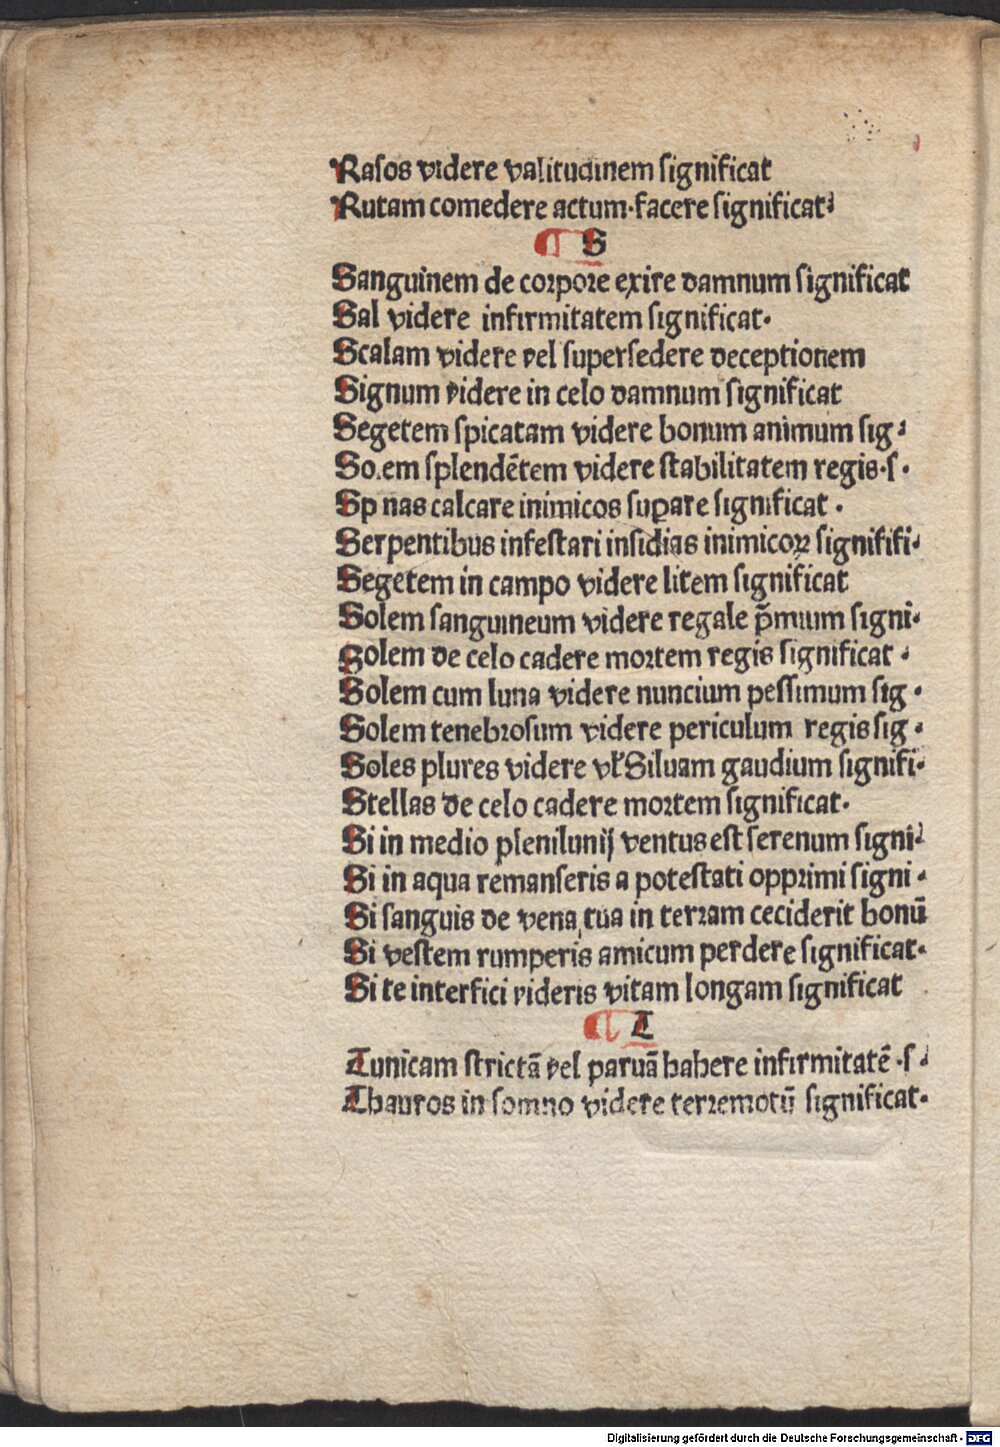 Rasos videre valitudinem significat
Rutam comedere actum·facere significat⸗
¶ S
Sanguinem de corpore exire damnum significat
Sal videre infirmitatem significat·
Scalam videre vel supersedere deceptionem
Signum videre in celo damnum significat
Segetem spicatam videre bonum animum sig⸗
So.em splendētem videre stabilitatem regis·s·
Sp nas calcare inimicos suꝑare significat·
Serpentibus infestari insidias inimicoꝝ signififi·
Segetem in campo videre litem significat
Solem sanguineum videre regale p̄mium signi·
Solem de celo cadere mortem regis significat·
Solem cum luna videre nuncium pessimum sig·
Solem tenebrosum videre periculum regis sig·
Soles plures videre vł Siluam gaudium signifi·
Stellas de celo cadere mortem significat·
Si in medio plenilunij ventus est serenum signi⸗
Si in aqua remanseris a potestati opprimi signi·
Si sanguis de vena tua in terram ceciderit bonū
Si vestem rumperis amicum perdere significat·
Si te interfici videris vitam longam significat
¶ T
Tunicam strictā vel paruā habere infirmitatē·s⸗
Thauros in somno videre terremotū significat·
Digitalisierung gefördert durch die Deutsche Forschungsgemeinschaft - DFG